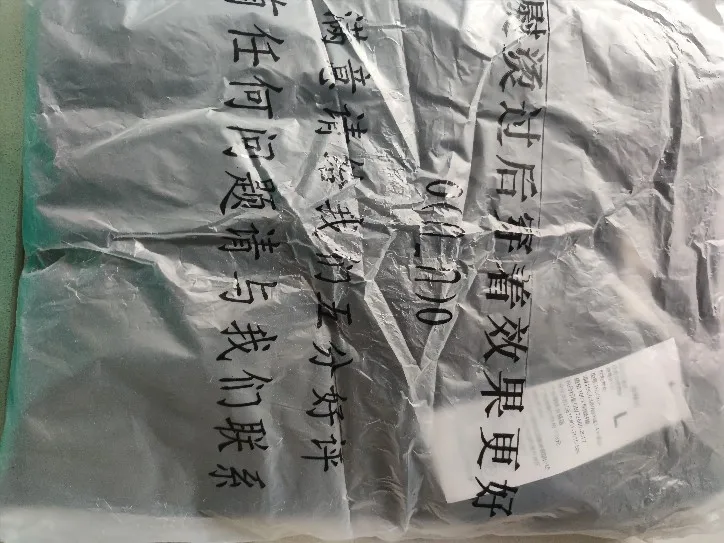 熨烫过后穿着效果更好
0(∩_∩)0
满意请给我们五分好评
有任何问题请与我们联系
L